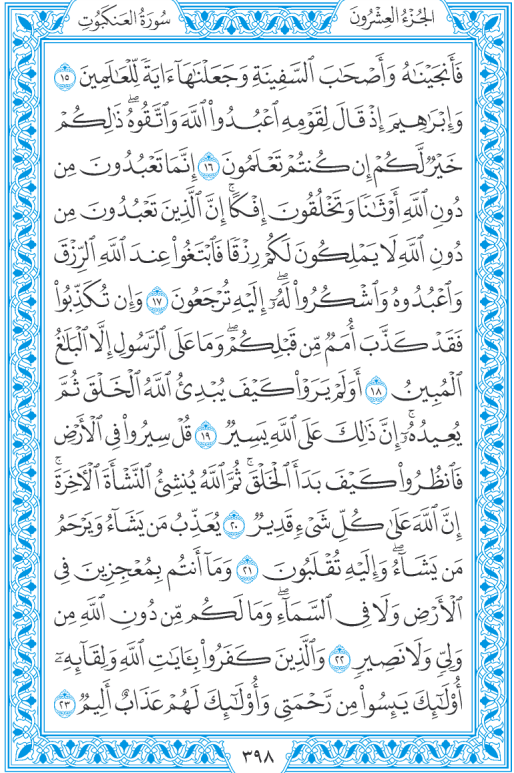 الجُزْءُ العِشْرُونَ
سُورَةُ العَنكَبُوتِ
فَأَنجَيْنَٰهُ وَأَصْحَٰبَ ٱلسَّفِينَةِ وَجَعَلْنَٰهَآ ءَايَةً لِّلْعَٰلَمِينَ ١٥
وَإِبْرَٰهِيمَ إِذْ قَالَ لِقَوْمِهِ ٱعْبُدُوا۟ ٱللَّهَ وَٱتَّقُوهُ ۖ ذَٰلِكُمْ
خَيْرٌ لَّكُمْ إِن كُنتُمْ تَعْلَمُونَ ١٦ إِنَّمَا تَعْبُدُونَ مِن
دُونِ ٱللَّهِ أَوْثَٰنًا وَتَخْلُقُونَ إِفْكًا ۚ إِنَّ ٱلَّذِينَ تَعْبُدُونَ مِن
دُونِ ٱللَّهِ لَا يَمْلِكُونَ لَكُمْ رِزْقًا فَٱبْتَغُوا۟ عِندَ ٱللَّهِ ٱلرِّزْقَ
وَٱعْبُدُوهُ وَٱشْكُرُوا۟ لَهُۥٓ ۖ إِلَيْهِ تُرْجَعُونَ ١٧ وَإِن تُكَذِّبُوا۟
فَقَدْ كَذَّبَ أُمَمٌ مِّن قَبْلِكُمْ ۖ وَمَا عَلَى ٱلرَّسُولِ إِلَّا ٱلْبَلَٰغُ
ٱلْمُبِينُ ١٨ أَوَلَمْ يَرَوْا۟ كَيْفَ يُبْدِئُ ٱللَّهُ ٱلْخَلْقَ ثُمَّ
يُعِيدُهُۥٓ ۚ إِنَّ ذَٰلِكَ عَلَى ٱللَّهِ يَسِيرٌ ١٩ قُلْ سِيرُوا۟ فِى ٱلْأَرْضِ
فَٱنظُرُوا۟ كَيْفَ بَدَأَ ٱلْخَلْقَ ۚ ثُمَّ ٱللَّهُ يُنشِئُ ٱلنَّشْأَةَ ٱلْءَاخِرَةَ ۚ
إِنَّ ٱللَّهَ عَلَىٰ كُلِّ شَىْءٍ قَدِيرٌ ٢٠ يُعَذِّبُ مَن يَشَآءُ وَيَرْحَمُ
مَن يَشَآءُ ۖ وَإِلَيْهِ تُقْلَبُونَ ٢١ وَمَآ أَنتُم بِمُعْجِزِينَ فِى
ٱلْأَرْضِ وَلَا فِى ٱلسَّمَآءِ ۖ وَمَا لَكُم مِّن دُونِ ٱللَّهِ مِن
وَلِىٍّ وَلَا نَصِيرٍ ٢٢ وَٱلَّذِينَ كَفَرُوا۟ بِـَٔايَٰتِ ٱللَّهِ وَلِقَآئِهِۦٓ
أُو۟لَٰٓئِكَ يَئِسُوا۟ مِن رَّحْمَتِى وَأُو۟لَٰٓئِكَ لَهُمْ عَذَابٌ أَلِيمٌ ٢٣
٣٩٨